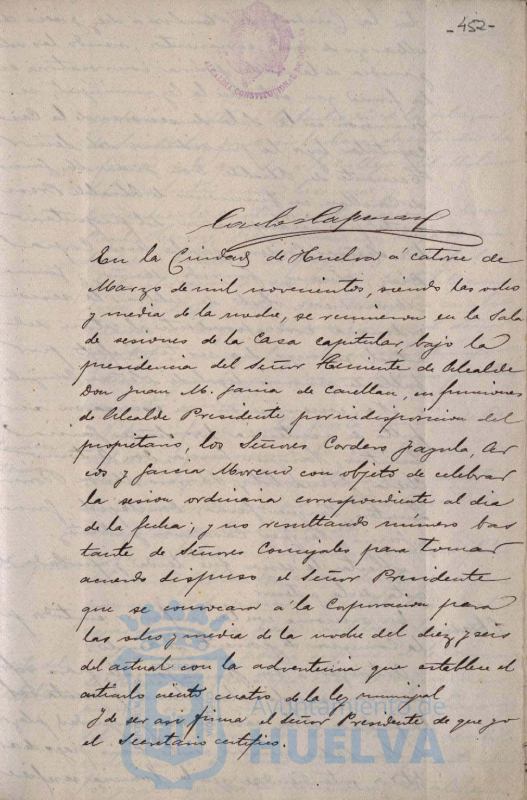 -452-
ALCALDIA CONSTITUCIONAL DE HUELVA
En la Ciudad de Huelva á catorce de
Marzo de mil novecientos, siendo las ocho
y media de la noche, se reunieron en la Sala
de sesiones de la Casa capitular bajo la
presidencia del Señor Teniente de Alcalde
Don Juan M. Garcia de en funciones
de Alcalde Presidente por indisposicion del
propietario, los Señores Cordero, Ar
cos y Garcia Moreno con objeto de celebrar
la sesion ordinaria correspondiente al dia
de la fecha; y no resultando número bas
tante de Señores Concejales para tomar
acuerdo dispuso el Señor Presidente
que se convocara á la Corporacion para
las ocho y media de la noche del diez y seis
del actual con la advertencia que establece el
articulo ciento cuatro de la ley municipal
Y de ser asi firma el Señor Presidente de que yo
el Secretario certifico.
Ayuntamiento de
HUELVA